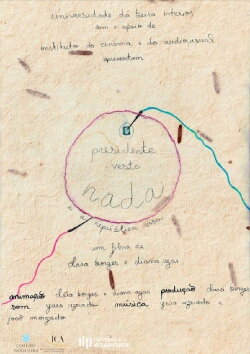 universidade da beira interior
com o apoio de
instituto do cinema e do audiovisual
apresentam
presidente
veste
nada
e a república rosa
um filme de
clara borges e diana agar
animação clara borges e diana agar produção clara borges
som yara azevedo música yara azevedo e
joão morgado
ICA